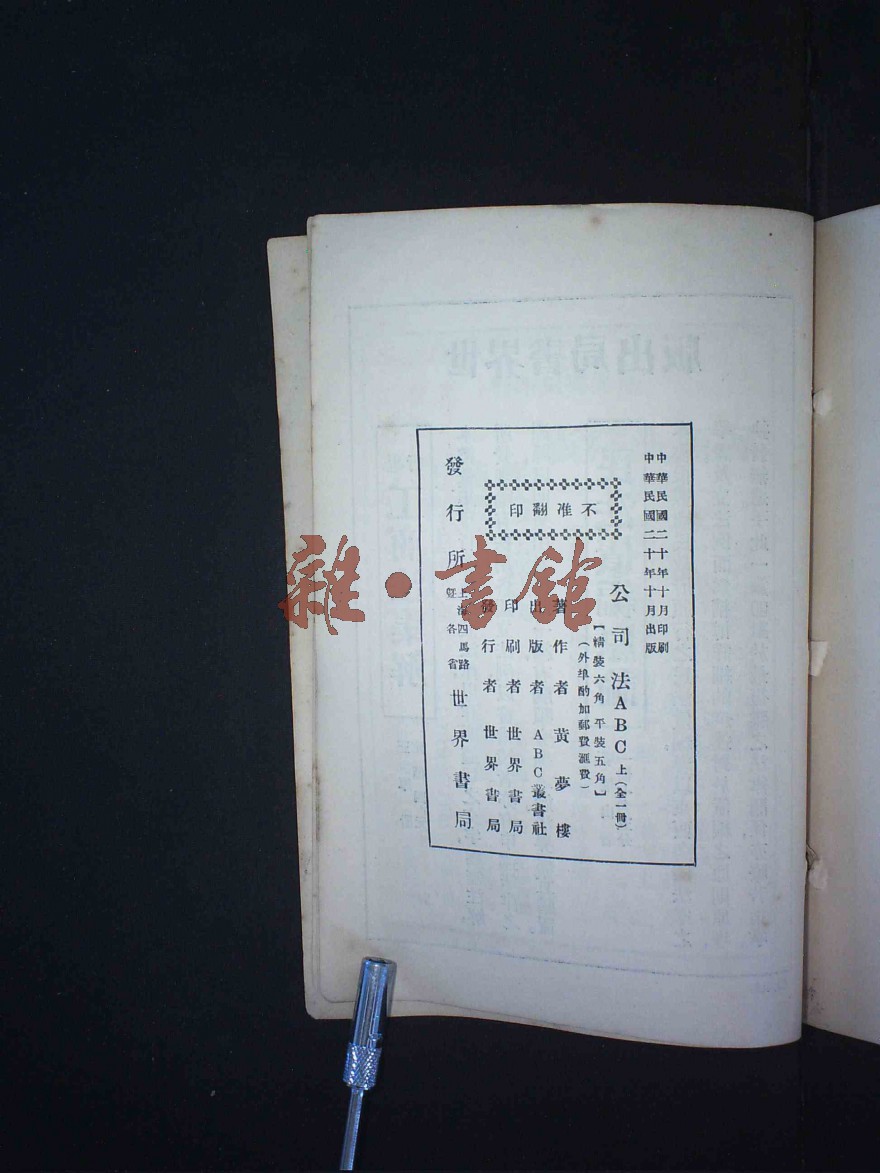 中華民國二十年十月印刷
中華民國二十年十月出版
公司法ABC上(全一冊)
【精裝六角 平裝五角】
(外埠酌加郵費滙費)
不准翻印
著作者 黃夢樓
出版者 ABC叢書社
印刷者 世界書局
發行者 世界書局
發行所 上海四馬路暨各省 世界書局
雜·書館
世界書局出版